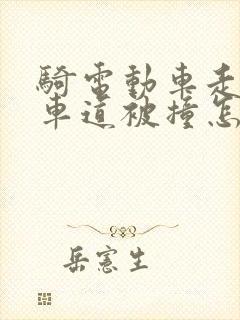 騎電動車走
車道被撞怎
岳憲生